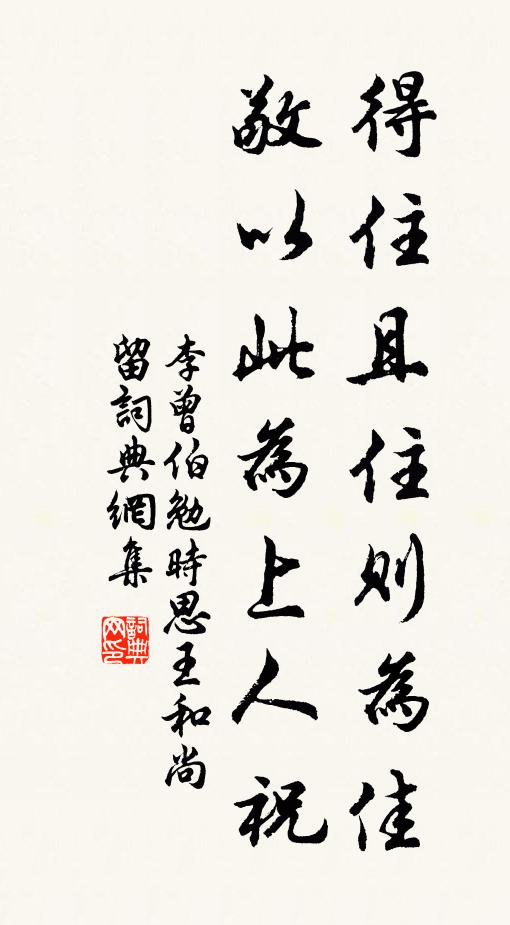 得住且住則為佳
敬以此為上人祝
李曾伯勉時思王和尚
留詞典網集
詞典网印